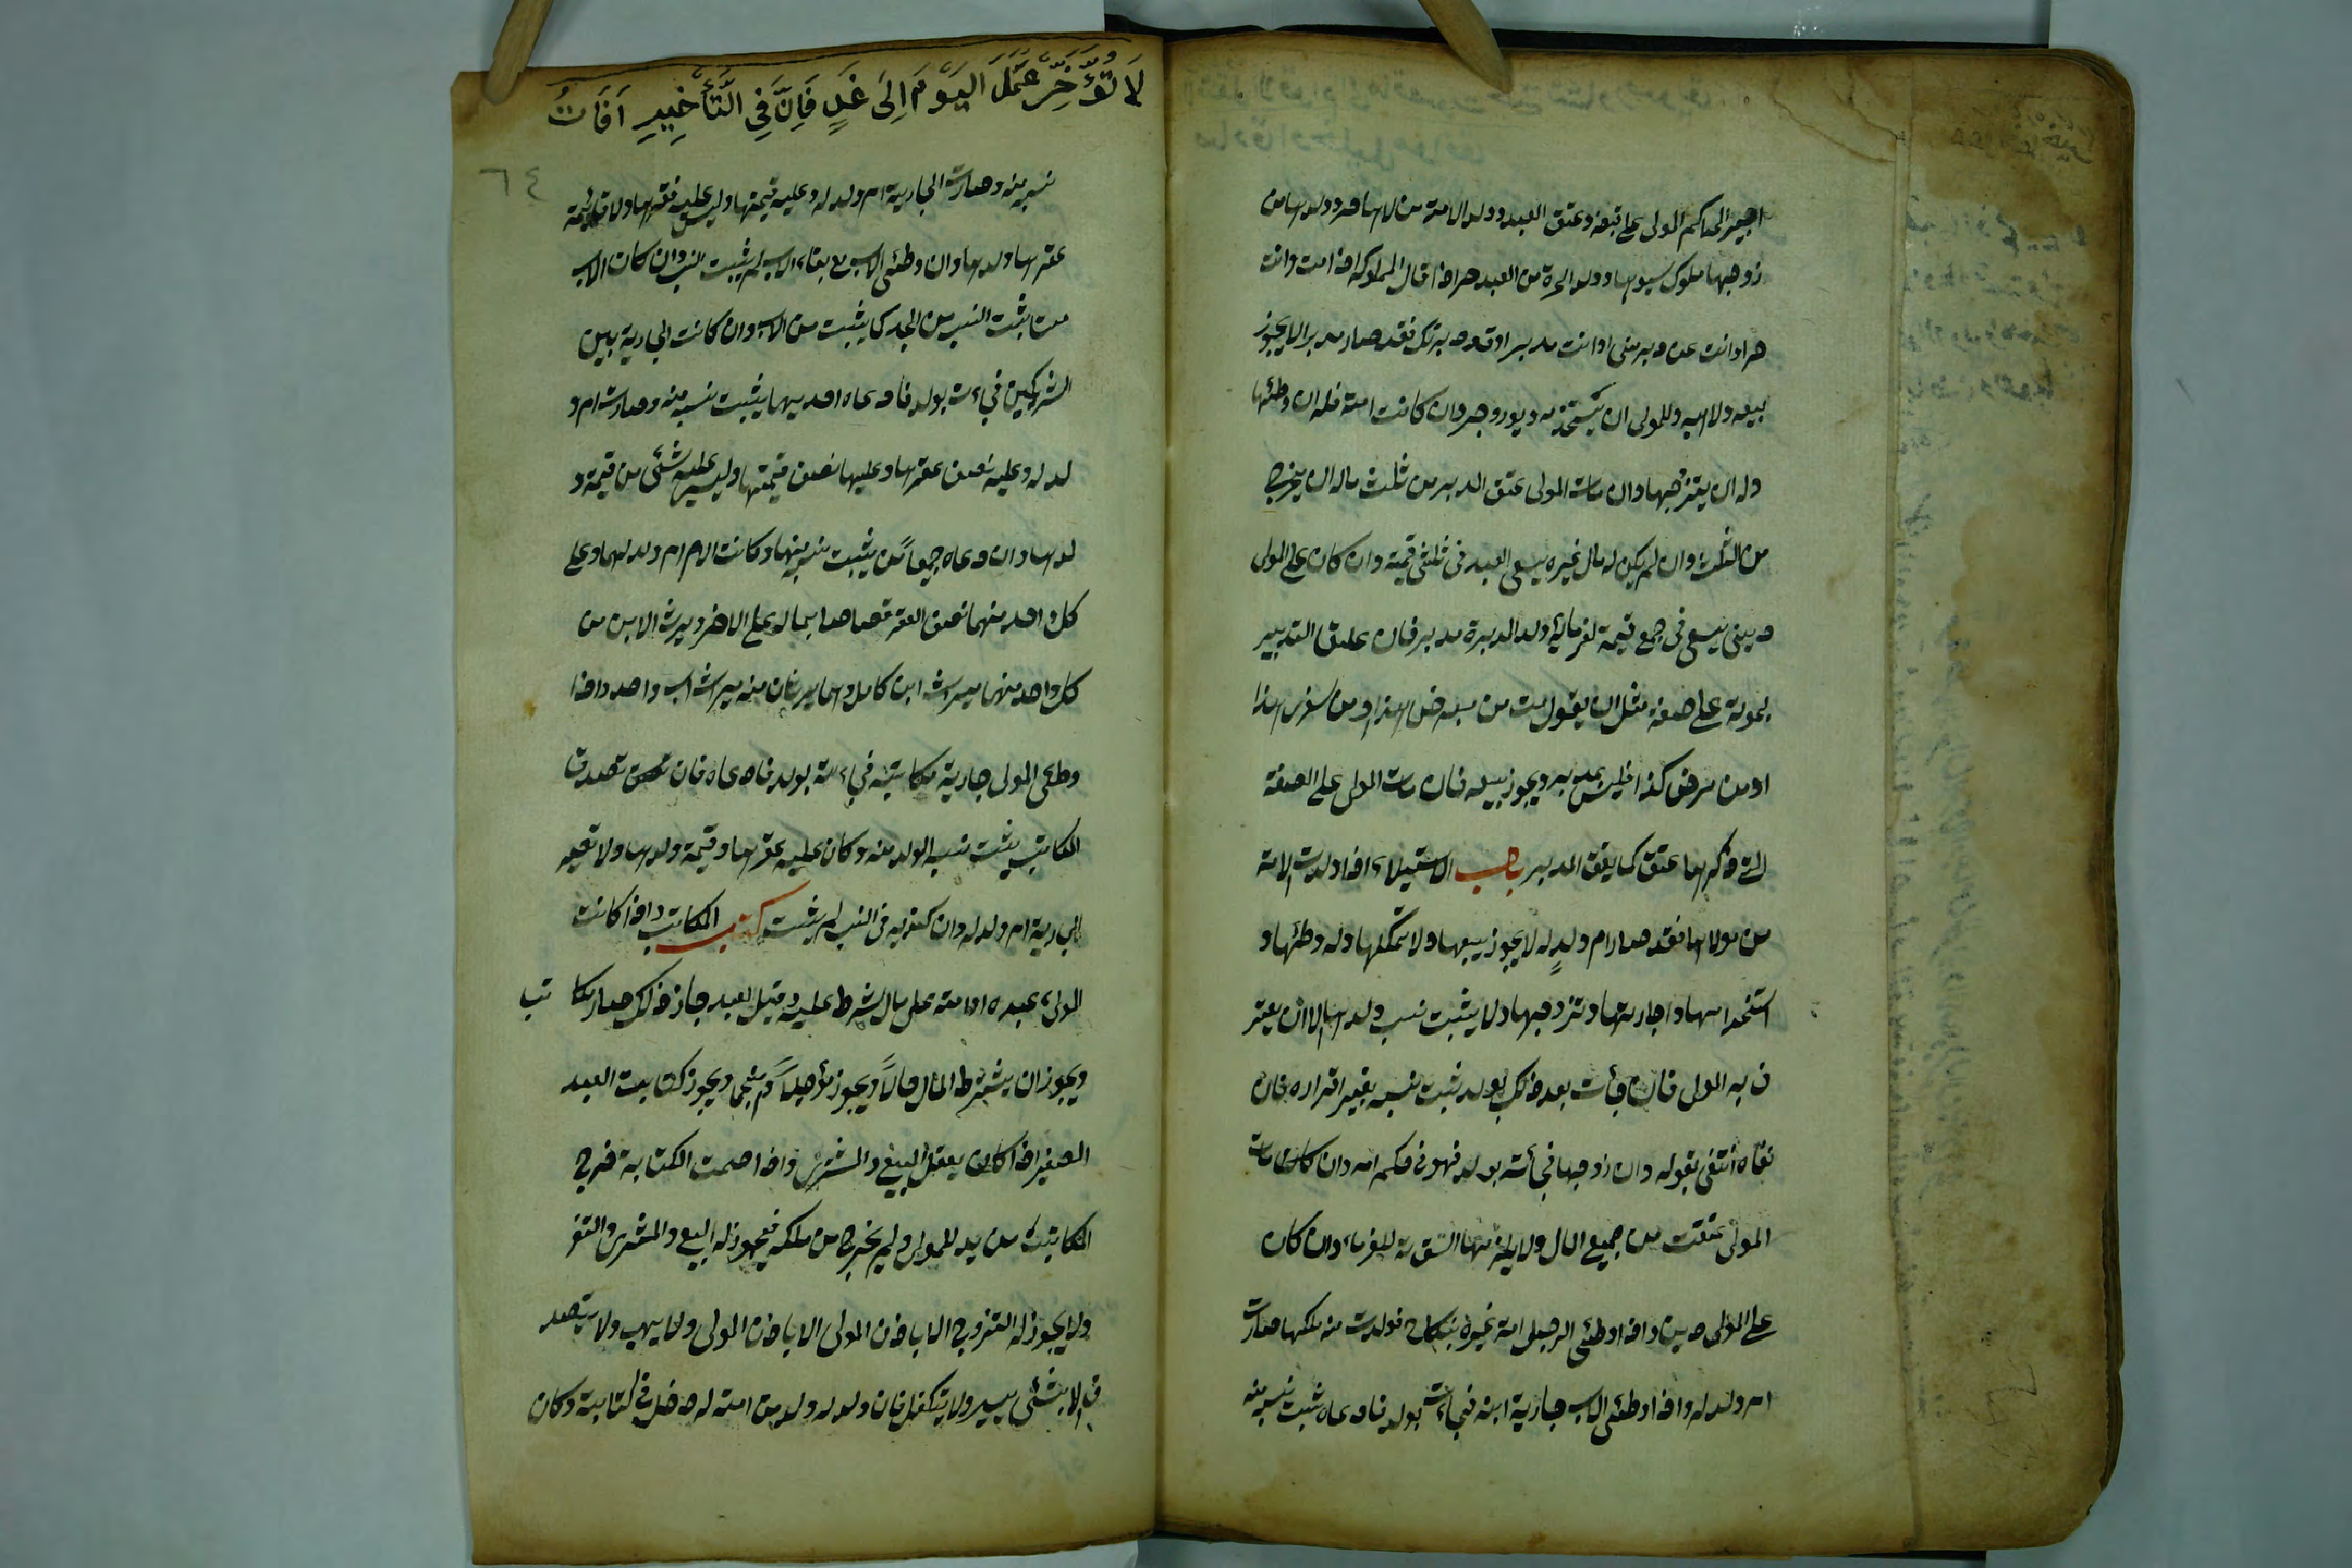 اجبر الحاكم المولى على قبضه وعتق العبد وولد الامة من مولاها حر وولدها من
زوجها مملوك لسيدها وولد الحرة من العبد حر اذا قال لمملوكه اذا مت فانت
حر او انت عن دبر منى او انت مدبر او قد دبرتك فقد صار مدبرا لا يجوز
بيعه ولا هبته وللمولى ان يستخدمه ويؤجره وان كانت امة فله ان وطئها
وله ان يتزوجها وان مات المولى عتق المدبر من ثلث ماله ان يخرج
من الثلث وان لم يكن له مال غيره يسعى العبد فى ثلثى قيمته وان كان على المولى
دين يسعى فى جميع قيمته لغرمائه وولد المدبرة مدبر فان علق التدبير
بموته على صفة مثل ان يقول مت من مرضى هذا او من سفرى هذا
او من مرض كذا فليس بمدبر ويجوز بيعه فان مات المولى على الصفة
التى ذكرها عتق كما يعتق المدبر باب الاستيلاء اذا ولدت الامة
من مولاها فقد صار ام ولد له لا يجوز بيعها ولا تملكها وله وطئها و
استخدامها واجارتها وتزوجها ولا يثبت نسب ولدها الا ان يعتر
ف به المولى فان جأت بعد ذلك بولد ثبت نسبه بغير اقراره فان
نفاه انتفى بقوله وان زوجها فجأت بولد فهو فى حكم امه وان كان مات
المولى عتقت من جميع المال ولا يلزمها السقاية للغرماء وان كان
على المولى دين واذا وطئى الرجل امة غيره بنكاح فولدت منه ملكها صارت
ام ولد له واذا وطئى الاب جارية ابنه فجاءت بولد فادعاه ثبت نسبه منه
لَا تُؤَخِّرْ عَمَلَ الْيَوْمِ اِلَى غَدٍ فَاِنَّ فِى التَّأْخِيرِ اٰفَاتٌ
٦٤
نسبه منه وصارت الجارية ام ولد له وعليه قيمتها وليس عليه عقرها ولا قيمة
عقرها ولدها وان وطئى الاب مع بقاء الاب لم يثبت النسب وان كان الاب
ميتا يثبت النسب من الجد كما يثبت من الاب وان كانت الجارية بين
الشريكين فجاءت بولد فادعاه احدهما يثبت نسبه منه وصارت ام و
لد له وعليه نصف عقرها وعليها نصف قيمتها وليس عليه شئى من قيمة و
لدها وان ادعاه جميعا يثبت نسبه منهما وكانت الام ام ولد لهما وعلى
كل واحد منهما نصف العقر قصاصا بماله على الاخر ويرث الابن من
كل واحد منهما ميراث ابن كامل وهما يرثان منه ميراث اب واحد واذا
وطئى المولى جارية مكاتبته فجاءت بولد فادعاه فان تصدق
المكاتب يثبت نسب الولد منه وكان عليه عقرها وقيمة ولدها ولا تصير
الجارية ام ولد له وان كذبه فى النسب لم يثبت كتاب المكاتب واذا كانت
المولى عبده او امته على مال شرط عليه وقبل العبد جاز ذلك صار مكا تب
ويجوز ان يشترط المال حالاً ويجوز مؤجلاً منجما ويجوز كتابت العبد
الصغير اذا كان يعقل البيع والمشترى واذا صحت الكتابة خرج
المكاتب من يد المولى ولم يخرج من ملكه فيجوز له البيع والمشترى والسفر
ولا يجوز له التزوج الا باذن المولى الا باذن المولى ولا يهب ولا يتصد
ق الا بشئى يسير ولا يتكفل فان ولد له ولد من امة له دخل فى كتابته وكان